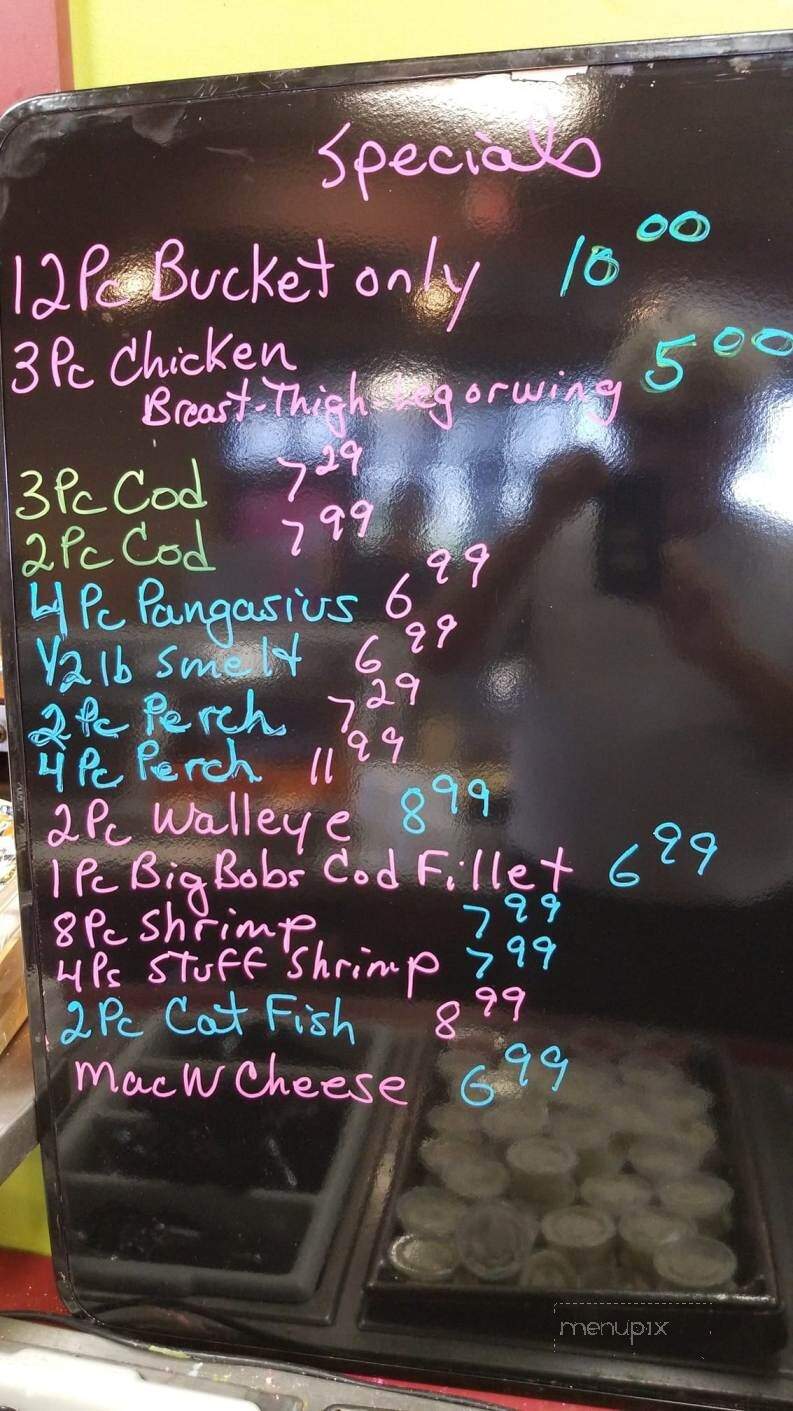 Specials
12Pc Bucket only 10 00
3Pc Chicken 5 00
Breast-Thigh-Leg or wing
3Pc Cod 7 29
2Pc Cod 7 99
4Pc Pangasius 6 99
1/2 lb Smelt 6 99
2Pc Perch 7 29
4Pc Perch 11 99
2Pc Walleye 8 99
1Pc Big Bobs Cod Fillet 6 99
8Pc Shrimp 7 99
4Ps Stuff Shrimp 7 99
2Pc Cat Fish 8 99
Mac W Cheese 6 99
menupix